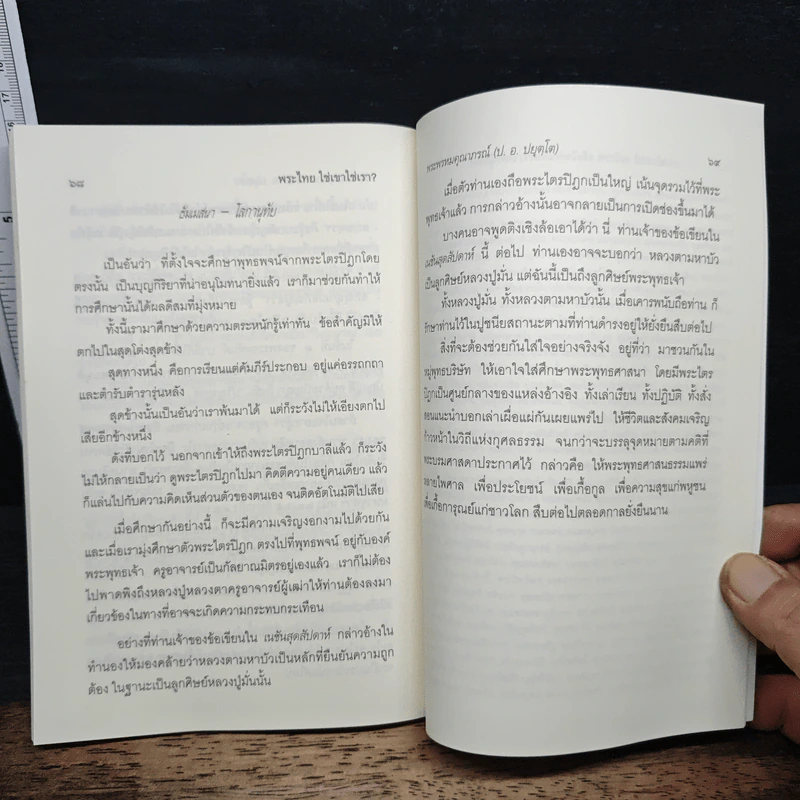 ๖๘
พระไทย ใช่เขาใช่เรา?
ธัมมสนา – โลกานุทัย
เป็นอันว่า ที่ตั้งใจจะศึกษาพุทธพจน์จากพระไตรปิฎกโดย
ตรงนั้น เป็นบุญกิริยาที่น่าอนุโมทนายิ่งแล้ว เราก็มาช่วยกันทำให้
การศึกษานั้นได้ผลดีสมที่มุ่งหมาย
ทั้งนี้เรามาศึกษาด้วยความตระหนักรู้เท่าทัน ข้อสำคัญมิให้
ตกไปในสุดโต่งสุดข้าง
สุดทางหนึ่ง คือการเรียนแต่คัมภีร์ประกอบ อยู่แค่อรรถกถา
และตำรับตำรารุ่นหลัง
สุดข้างนั้นเป็นอันว่าเราพ้นมาได้ แต่ก็ระวังไม่ให้เอียงตกไป
เสียอีกข้างหนึ่ง
ดังที่บอกไว้ นอกจากเข้าให้ถึงพระไตรปิฎกบาลีแล้ว ก็ระวัง
ไม่ให้กลายเป็นว่า ดูพระไตรปิฎกไปมา คิดตีความอยู่คนเดียว แล้ว
ก็แล่นไปกับความคิดเห็นส่วนตัวของตนเอง จนติดอัตโนมัติไปเสีย
เมื่อศึกษากันอย่างนี้ ก็จะมีความเจริญงอกงามไปด้วยกัน
และเมื่อเรามุ่งศึกษาตัวพระไตรปิฎก ตรงไปที่พุทธพจน์ อยู่กับองค์
พระพุทธเจ้า ครูอาจารย์เป็นกัลยาณมิตรอยู่เองแล้ว เราก็ไม่ต้อง
ไปพาดพิงถึงหลวงปู่หลวงตาครูอาจารย์ผู้เฒ่าให้ท่านต้องลงมา
เกี่ยวข้องในทางที่อาจจะเกิดความกระทบกระเทือน
อย่างที่ท่านเจ้าของข้อเขียนใน เนชั่นสุดสัปดาห์ กล่าวอ้างใน
ทำนองให้มองคล้ายว่าหลวงตามหาบัวเป็นหลักที่ยืนยันความถูก
ต้อง ในฐานะเป็นลูกศิษย์หลวงปู่มั่นนั้น
พระพรหมคุณาภรณ์ (ป. อ. ปยุตฺโต)
๖๙
เมื่อตัวท่านเองถือพระไตรปิฎกเป็นใหญ่ เน้นจุดรวมไว้ที่พระ
พุทธเจ้าแล้ว การกล่าวอ้างนั้นอาจกลายเป็นการเปิดช่องขึ้นมาได้
บางคนอาจพูดติงเชิงล้อเอาได้ว่า นี่ ท่านเจ้าของข้อเขียนใน
เนชั่นสุดสัปดาห์ นี้ ต่อไป ท่านเองอาจจะบอกว่า หลวงตามหาบัว
เป็นลูกศิษย์หลวงปู่มั่น แต่ฉันนี้เป็นถึงลูกศิษย์พระพุทธเจ้า
ทั้งหลวงปู่มั่น ทั้งหลวงตามหาบัวนั้น เมื่อเคารพนับถือท่าน ก็
รักษาท่านไว้ในปูชนียสถานะตามที่ท่านดำรงอยู่ให้ยั่งยืนสืบต่อไป
สิ่งที่จะต้องช่วยกันใส่ใจอย่างจริงจัง อยู่ที่ว่า มาชวนกันใน
หมู่พุทธบริษัท ให้เอาใจใส่ศึกษาพระพุทธศาสนา โดยมีพระไตร
ปิฎกเป็นศูนย์กลางของแหล่งอ้างอิง ทั้งเล่าเรียน ทั้งปฏิบัติ ทั้งสั่ง
สอนแนะนำบอกเล่าเผื่อแผ่กันเผยแพร่ไป ให้ชีวิตและสังคมเจริญ
ก้าวหน้าในวิถีแห่งกุศลธรรม จนกว่าจะบรรลุจุดหมายตามคติที่
พระบรมศาสดาประกาศไว้ กล่าวคือ ให้พระพุทธศาสนธรรมแพร่
หลายไพศาล เพื่อประโยชน์ เพื่อเกื้อกูล เพื่อความสุขแก่พหูชน
เพื่อเกื้อการุณย์แก่ชาวโลก สืบต่อไปตลอดกาลยั่งยืนนาน